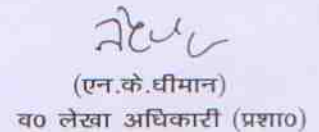 (एन.के.धीमान)
व० लेखा अधिकारी (प्रशा०)